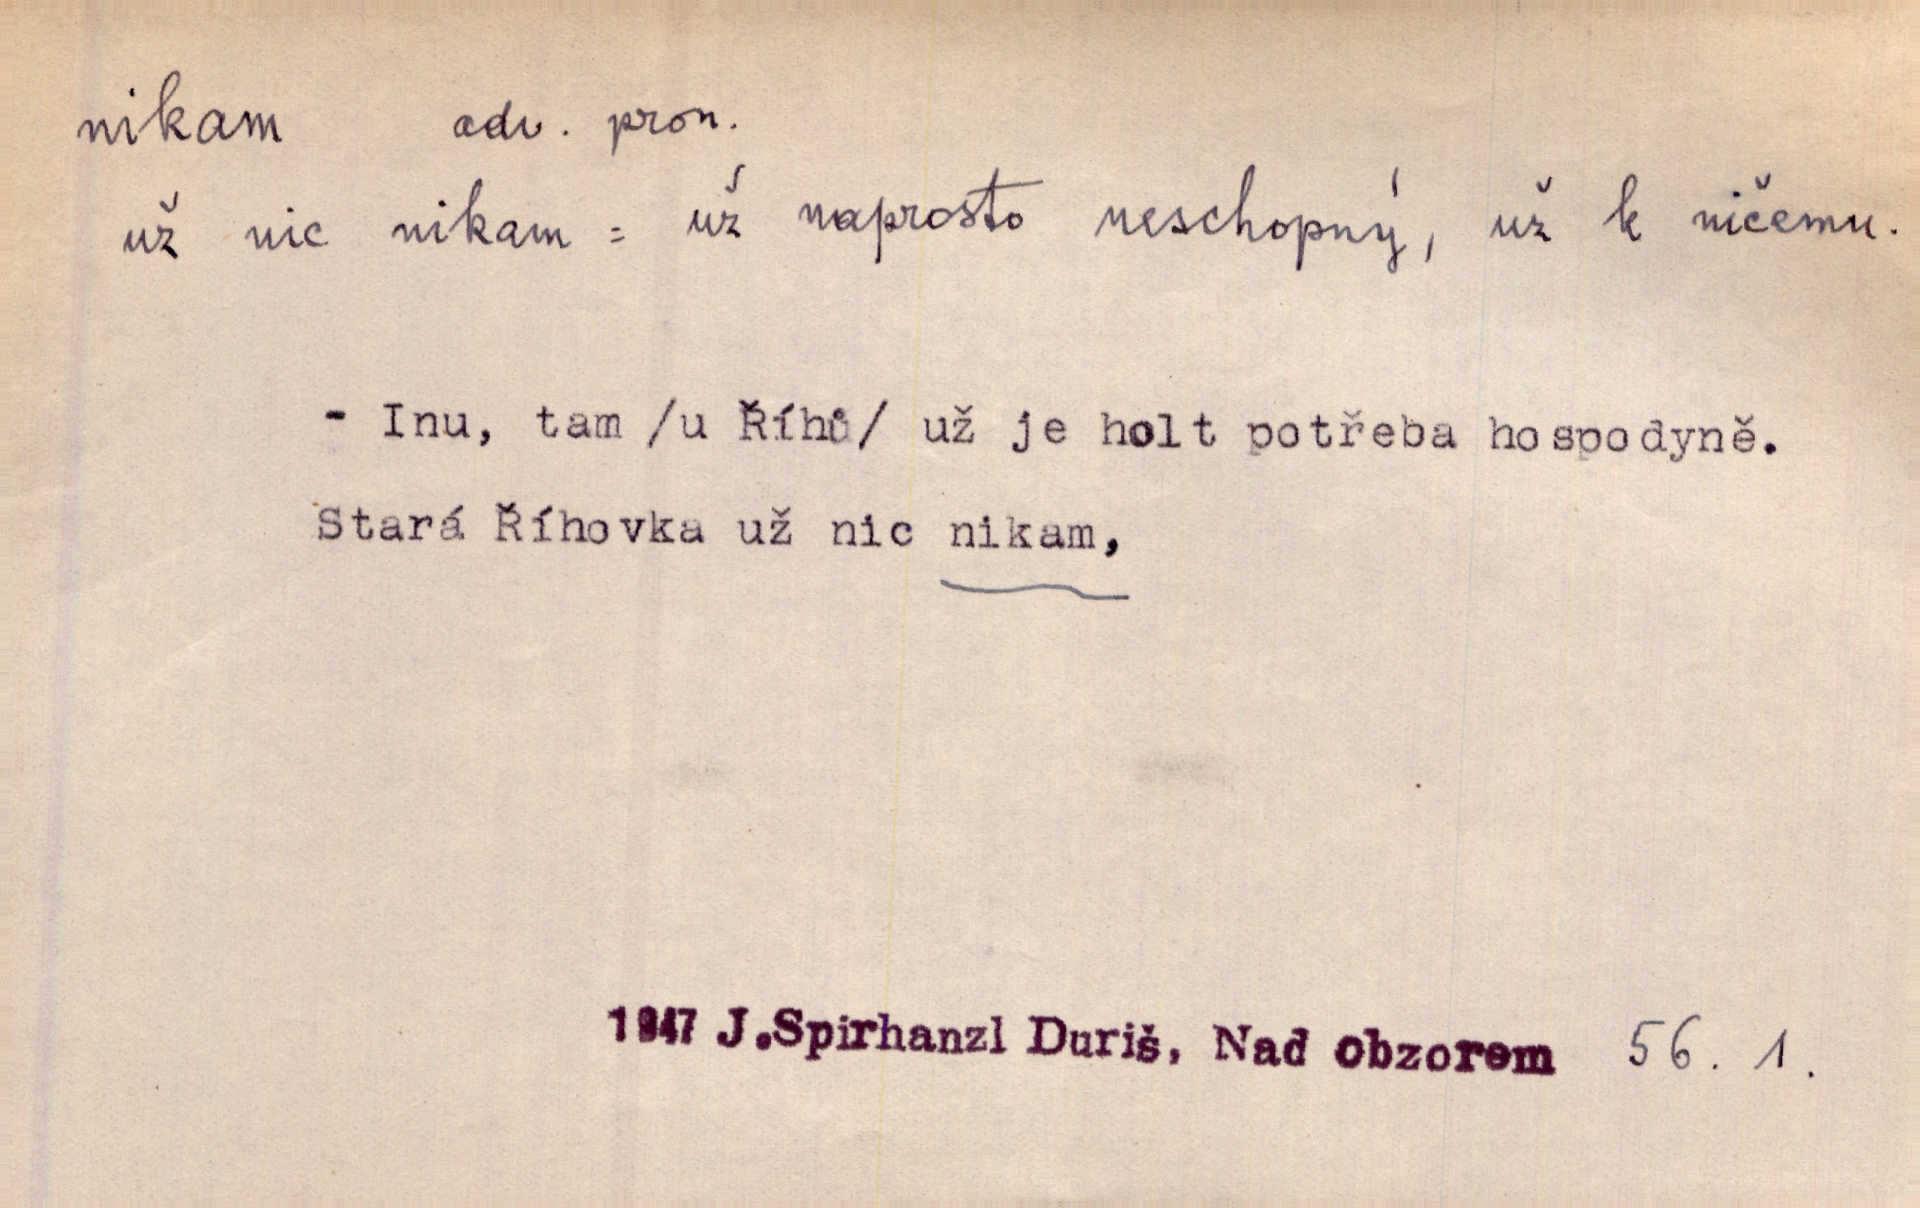 nikam adv. pron.
už nic nikam = už naprosto neschopný, už k ničemu.
- Inu, tam /u Říhů/ už je holt potřeba hospodyně.
Stará Říhovka už nic nikam,
1947 J.Spirhanzl Duriš, Nad obzorem 56. 1.